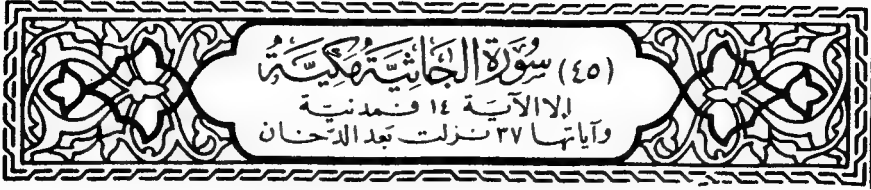 (٤٥) سُورَةُ الجَاثِيَةِ مَكِيَّة
إلا الآية ١٤ فمدنية
وآياتها ٣٧ نزلت بعد الدخان